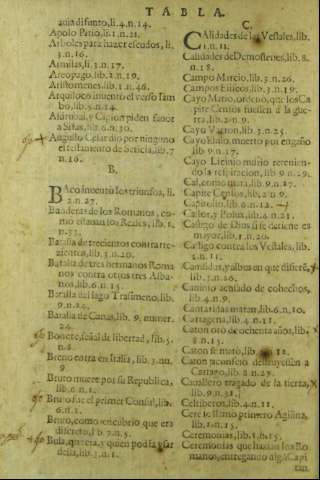 TABLA.
auia difunto, li.4.n.14.
Apolo Patio, li.1.n.21.
Arboles para hazer escudos, li.
3.n.16.
Armilas, li.3.n.17.
Areopago, lib.2.n.19.
Aristomenes, lib.1.n.46.
Arquiloco inuentó el verso Iam
bo, lib.5.n.14.
Asdrubal, y Cipion piden fauor
a Sifax, lib.6.n.30.
Augusto Cesar dio por ninguno
el testamento de lib.7
n.16.
B.
BAco inuentó los triunfos, li.
2.n.27.
Banderas de los Romanos, co-
mo eran las Reales, lib.1.
n.33.
Batalla de trecientos contra tre-
zientos, lib.3.n.20.
Batalla de tres hermanos Roma
nos contra otros tres Alba-
nos, lib.6.n.15.
Batalla del lago Trasimeno, lib.
9.n.24.
Batalla de Canas, lib. 9. numer.
24.
Bonete, señal de libertad, lib.5.
n.8.
Breno entra en Italia, lib.3.nu.
9.
Bruto muere por su Republica,
lib.6.n.1.
Bruto fue el primer Consul, lib.
6.n.2.
Bruto, como encubrio que era
discreto, lib.7.n.5.
Bula, que era, y quien podia vsar
della, lib.3.n.1.
C.
CAlidades de las Vestales, lib.
1.n.11.
Calidades de Demostenes, lib.8.
n.18.
Campo Marcio, lib.3.n.26.
Campos Eliseos, lib.3.n.19.
Cayo Mario, ordenò, que los Ca
pite Censos fuessen á la gue-
rra, lib.2.n.9.
Cayo Varron, lib.3.n.25.
Cayo muerto por engaño
lib 9.n.17.
Cayo Licinio murio retenien-
do la respiracion, lib 9.n.29.
Cal, como mata, lib 9.n.27.
Capite Censos, lib.2.n.9.
Capitolio, lib 6.n.12.
Castor, y Polux, lib.4.n.21.
Castigo de Dios si se detiene es
mayor, lib.3.n.26.
Castigo contra las Vestales, lib.
5.n.11.
Candidas, y albas en que difiere,
lib.3.n.26.
Caninio acusado de cohechos,
lib 4.n.9.
Cantaridas matan, lib.6.n.10.
Cartagena, lib 4.n.11.
Caton oro de ochenta años, lib.
8.n.13.
Caton se mató, lib 12.
Caton aconsejó destruyessen a
Cartago, lib.8.n.27.
Cauallero tragado de la tierra,
lib 9.n.31.
Celtiberos, lib 4.n.11.
Cere el primero Agilina,
lib.1.n.15.
Ceremonias, lib.1.n.15.
Ceremonias que hazian los Ro-
manos, entregando algũ Capi
tan